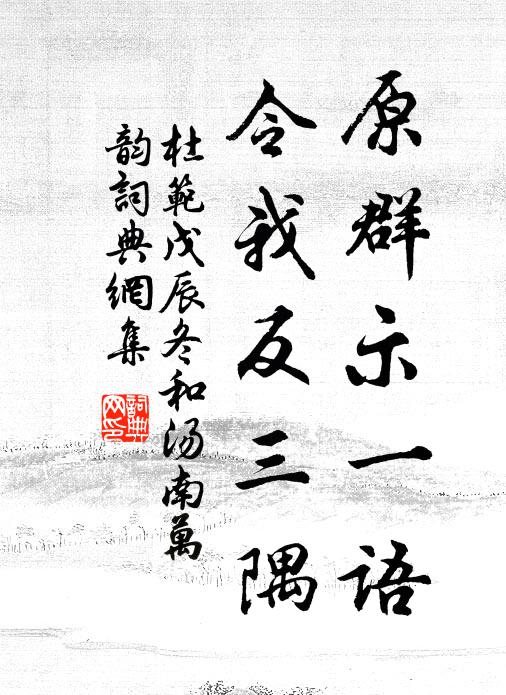 原群示一語
令我反三隅
杜範戊辰冬和湯南萬
韵詞典網集
詞典
网印